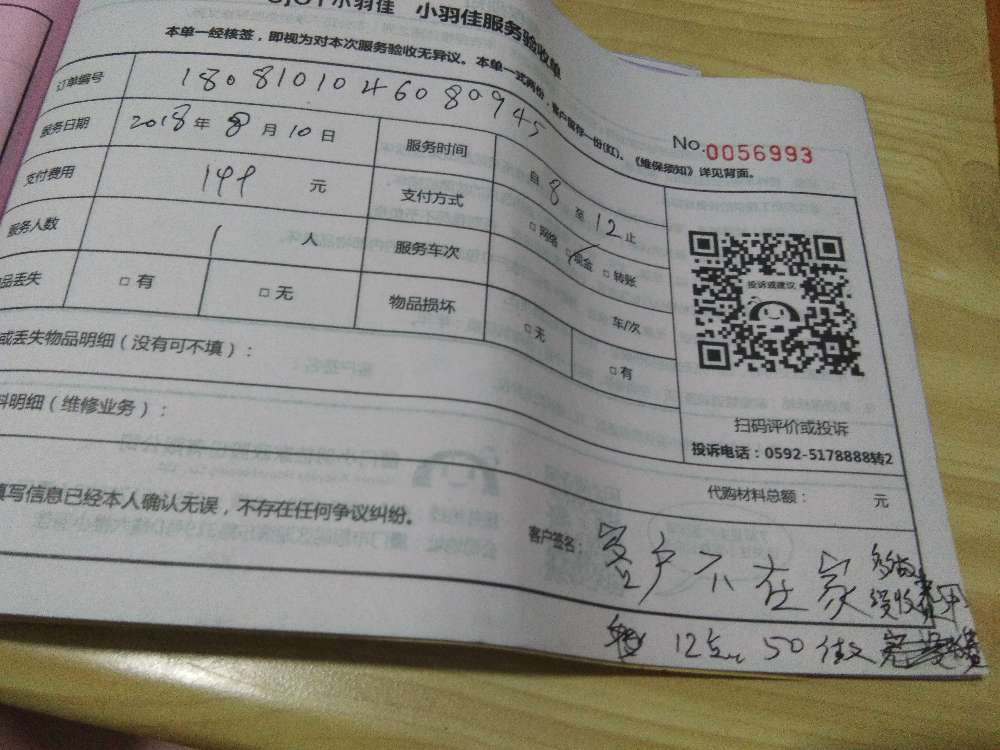 小羽佳 小羽佳服务验收单
本单一经核签，即视为对本次服务验收无异议。本单一式两份，客户留存一份(红)、《维保须知》详见背面。
No.0056993
订单编号 1808101046080945
服务日期 2018年8月10日 服务时间 自8至12止
支付费用 149元 支付方式 □网络 □现金 □转账
服务人数 1人 服务车次 车/次
品丢失 □有 □无 物品损坏 □无 □有
或丢失物品明细（没有可不填）：
料明细（维修业务）：
投诉或建议
扫码评价或投诉
投诉电话：0592-5178888转2
代购材料总额： 元
填写信息已经本人确认无误，不存在任何争议纠纷。
客户签名： 客户不在家
12点 50